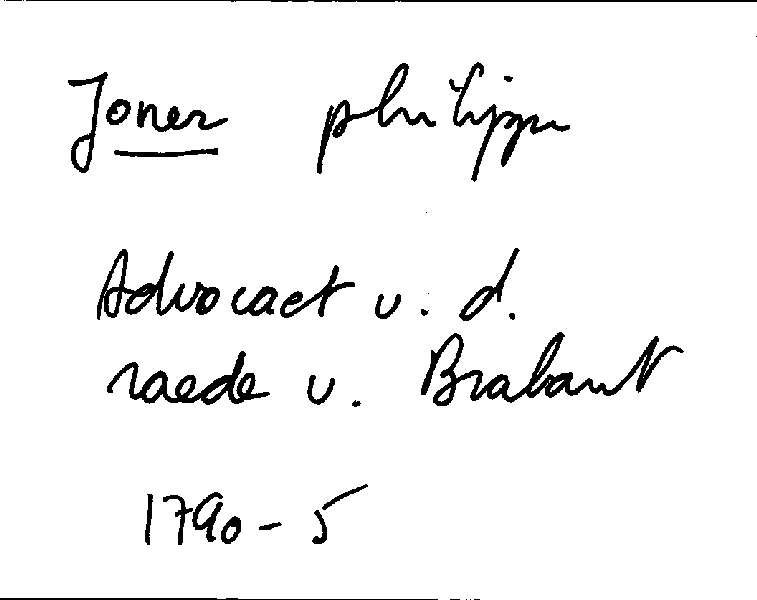 Joner philippe
Advocaet v. d.
raede v. Brabant
1790 - 5